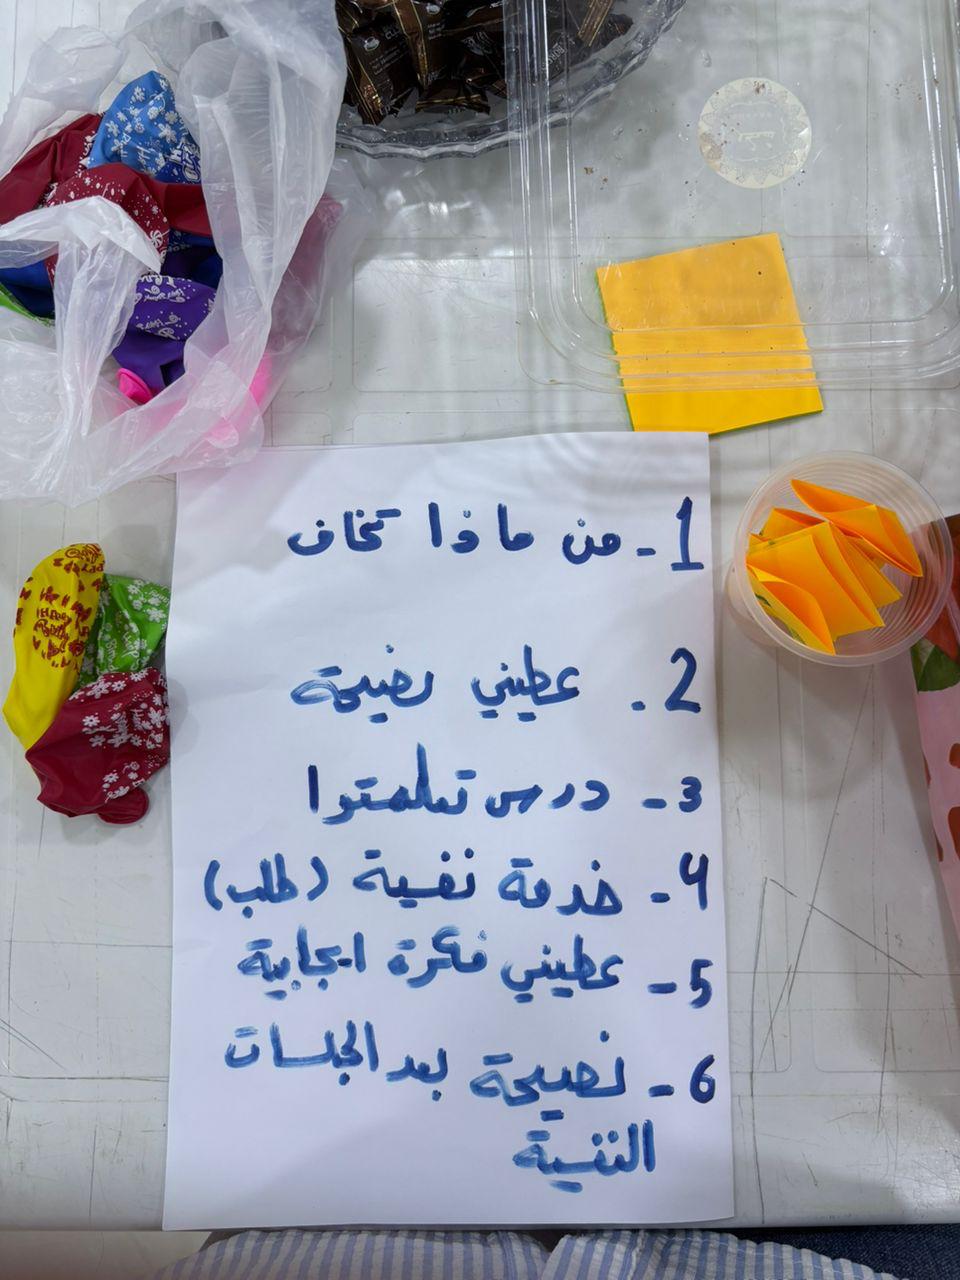 1- من ماذا تخاف
2. عطيني نصيحة
3- درس تعلمتوا
4- خدمة نفسية (طلب)
5- عطيني فكرة ايجابية
6- نصيحة بعد الجلسات
النفسية